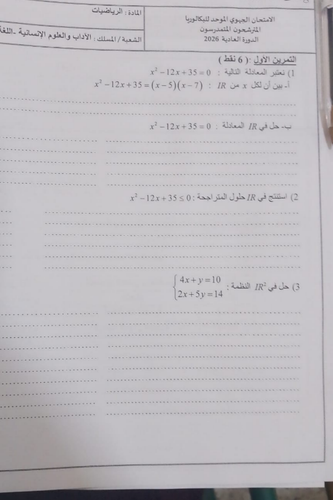 الامتحان الجهوي الموحد للبكالوريا
المترشحون المتمدرسون
الدورة العادية 2026
المادة : الرياضيات
الشعبة / المسلك : الآداب والعلوم الإنسانية -اللغة
التمرين الأول :( 6 نقط )
1) نعتبر المعادلة التالية : x² −12x+35 = 0
أ- بين أن لكل x من IR : x² −12x+35 = (x−5)(x−7)
ب- حل في IR المعادلة : x² −12x+35 = 0
2) استنتج في IR حلول المتراجحة : x² −12x+35 ≤ 0
3) حل في IR² النظمة : { 4x+y=10
2x+5y=14